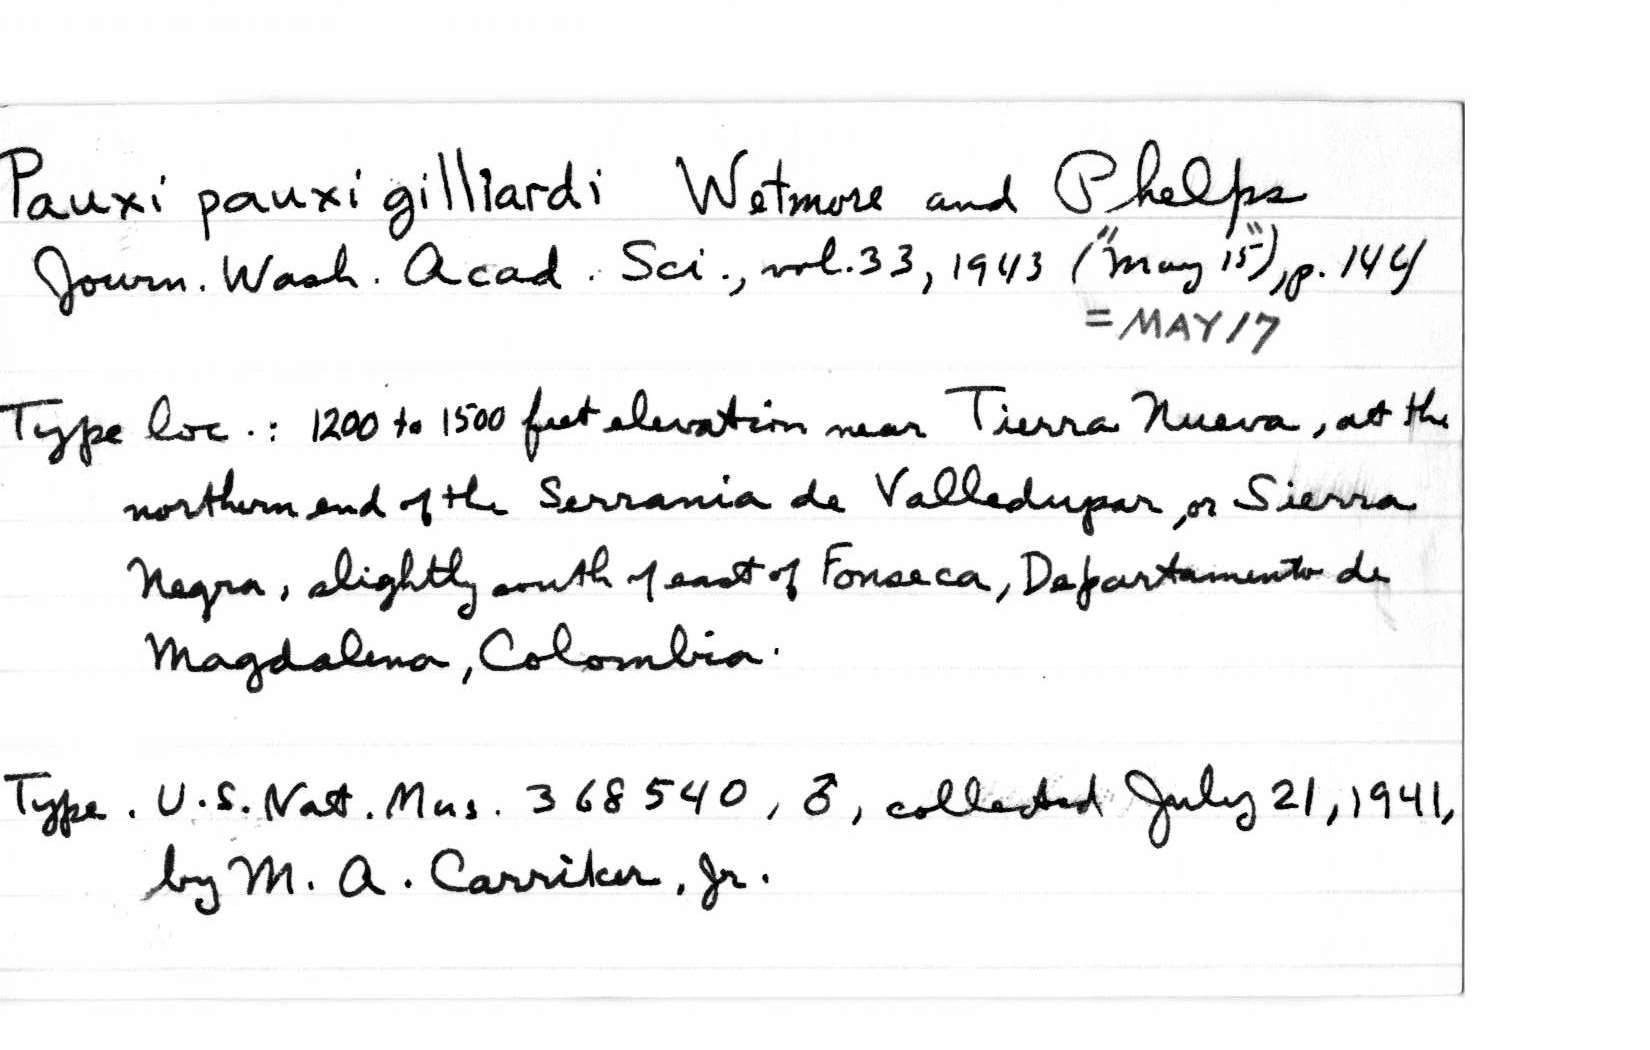 Pauxi pauxi gilliardi Wetmore and Phelps
Journ. Wash. Acad. Sci., vol. 33, 1943 ("May 15"), p. 144
= MAY 17
Type loc.: 1200 to 1500 feet elevation near Tierra Nueva, at the
northern end of the Serrania de Valledupar, or Sierra
Negra, slightly south of east of Fonseca, Departamento de
Magdalena, Colombia.
Type. U.S. Nat. Mus. 368540, ♂, collected July 21, 1941,
by M. A. Carriker, Jr.